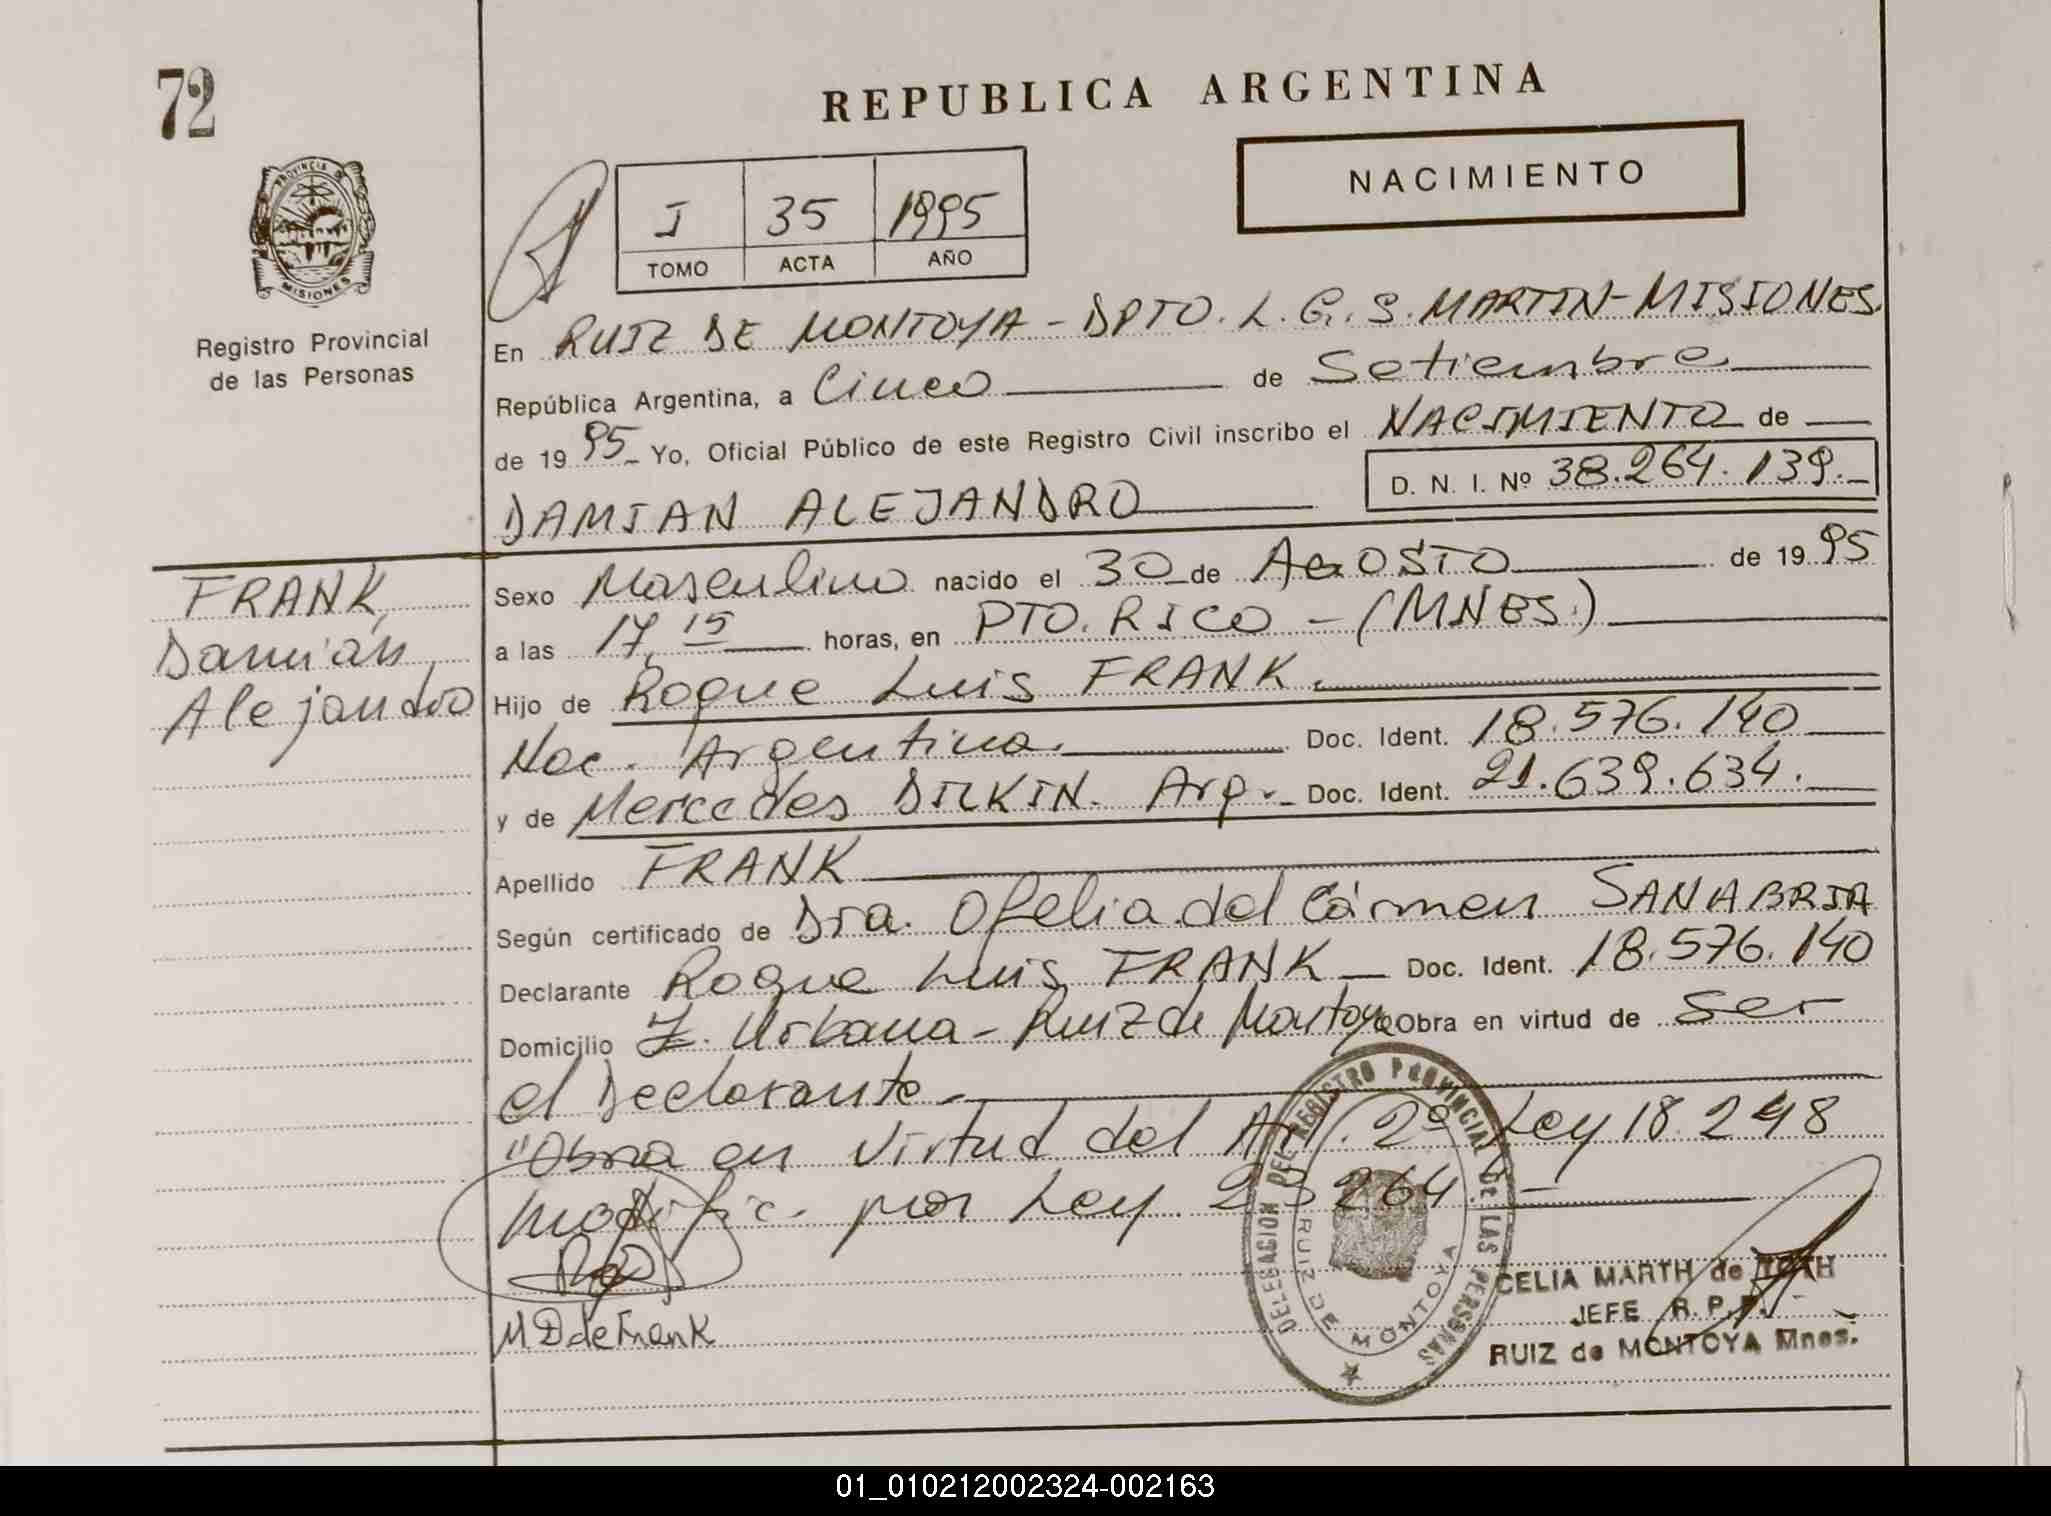 72
REPUBLICA ARGENTINA
NACIMIENTO
I 35 1995
TOMO ACTA AÑO
PROVINCIA DE MISIONES
Registro Provincial
de las Personas
En RUIZ DE MONTOYA - DPTO. L. G. S. MARTIN - MISIONES
República Argentina, a Cinco de Setiembre
de 1995 Yo, Oficial Público de este Registro Civil inscribo el NACIMIENTO de
DAMIAN ALEJANDRO D. N. I. Nº 38.264.139.-
FRANK,
Damián
Alejandro
Sexo Masculino nacido el 30 de AGOSTO de 1995
a las 17,15 horas, en PTO. RICO - (MNES.)
Hijo de Roque Luis FRANK.
Nac. Argentina. Doc. Ident. 18.576.140
y de Mercedes DILKIN. Arg.- Doc. Ident. 21.639.634.
Apellido FRANK
Según certificado de Dra. Ofelia del Cármen SANABRIA
Declarante Roque Luis FRANK Doc. Ident. 18.576.140
Domicilio Z. Urbana - Ruiz de Montoya Obra en virtud de ser
el Declarante.-
"Obra en virtud del Art. 2º Ley 18.248
modific. por Ley 23.264.-
M D de Frank
DELEGACION DEL REGISTRO PROVINCIAL DE LAS PERSONAS
RUIZ DE MONTOYA
CELIA MARTH de TOTH
JEFE R. P. P.
RUIZ de MONTOYA Mnes.
01_010212002324-002163